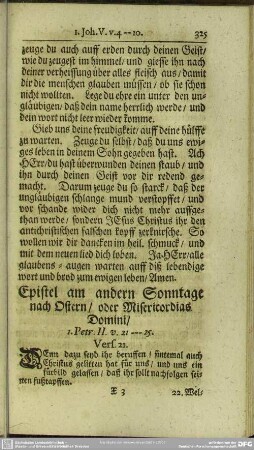 1. Joh. V. v. 4--10. 325
zeuge du auch auff erden durch deinen Geist/
wie du zeugest im himmel/ und giesse ihn nach
deiner verheissung über alles fleisch aus/ damit
dir die menschen glauben müssen/ ob sie schon
nicht wollten. Lege du ehre ein unter den un-
gläubigen/ daß dein name herrlich werde/ und
dein wort nicht leer wieder komme.
Gieb uns deine freudigkeit/ auff deine hülffe
zu warten. Zeuge du selbst/ daß du uns ewi-
ges leben in deinem Sohn gegeben hast. Ach
HErr/ du hast überwunden deinen staub/ und
ihn durch deinen Geist vor dir redend ge-
macht. Darum zeuge du so starck/ daß der
ungläubigen schlange mund verstopffet/ und
vor schande wider dich nicht mehr auffge-
than werde/ sondern JEsus Christus ihr den
antichristischen falschen kopff zerknirsche. So
wollen wir dir dancken im heil. schmuck/ und
mit dem neuen lied dich loben. Ja HErr/ alle
glaubens-augen warten auff diß lebendige
wort und brod zum ewigen leben/ Amen.
Epistel am andern Sonntage
nach Ostern/ oder Misericordias
Domini/
1. Petr. II. v. 21---25.
Vers. 21.
DEnn dazu seyd ihr beruffen/ sintemal auch
Christus gelitten hat für uns/ und uns ein
fürbild gelassen/ daß ihr sollt nachfolgen sei-
nen fußtapffen.
X 3 22. Wel-